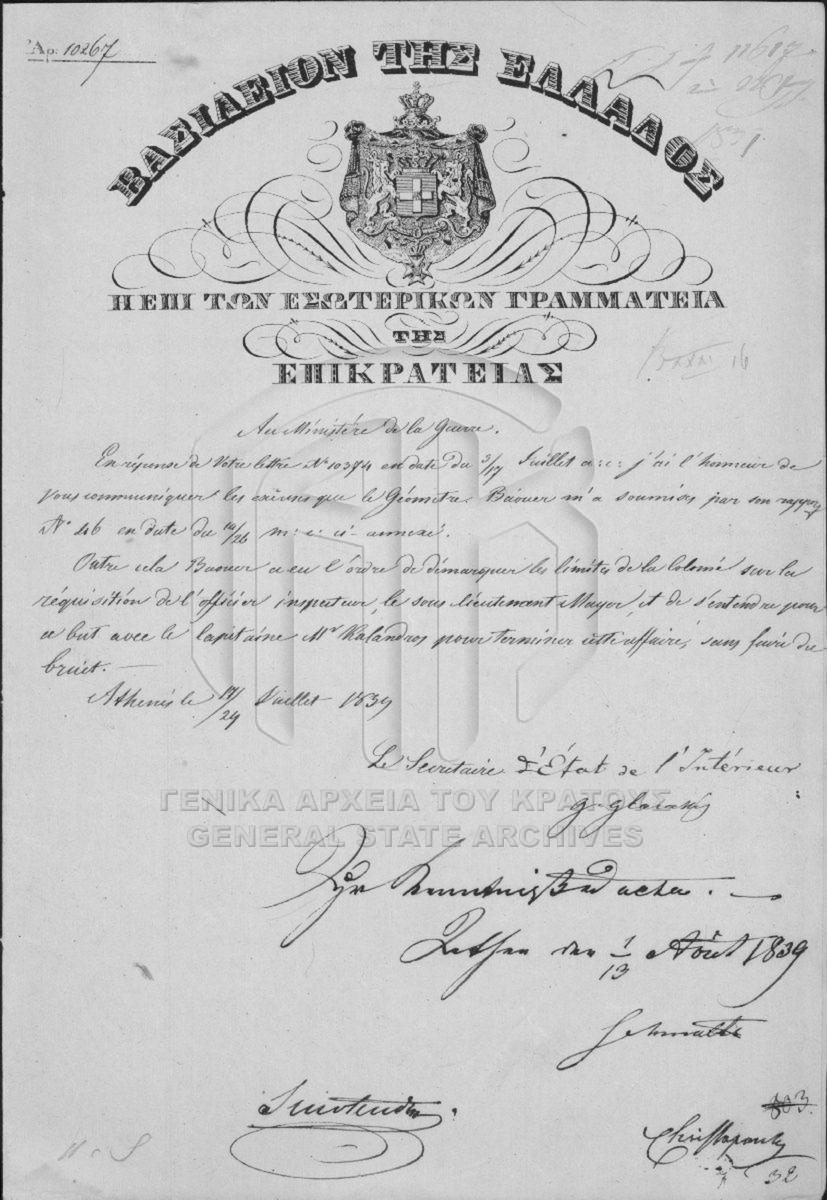 Ἀρ. 10267
11617
ΒΑΣΙΛΕΙΟΝ ΤΗΣ ΕΛΛΑΔΟΣ
Η ΕΠΙ ΤΩΝ ΕΣΩΤΕΡΙΚΩΝ ΓΡΑΜΜΑΤΕΙΑ
ΤΗΣ
ΕΠΙΚΡΑΤΕΙΑΣ
16
Au Ministére de la Guerre.
En réponse de Votre lettre No 10374 en date du 5/17 Juillet a: c: j'ai l'honneur de
vous communiquer les que le Géometre Baouer m'a soumises par son rapport
No 46 en date du 14/26 m: c: ci-annexé.
Outre cela Baouer a eu l'ordre de démarquer les limites de la Colonie sur la
réquisition de l'officier inspecteur, le sous lieutenant Mayer, et de s'entendre pour
ce but avec le Capitaine Mr Kalandros pour terminer cette affaire, sans faire du
bruit.—
Athenes le 17/29 Juillet 1839
Le Secretaire d'État de l'Intérieur
ΓΕΝΙΚΑ ΑΡΧΕΙΑ ΤΟΥ ΚΡΑΤΟΥΣ
GENERAL STATE ARCHIVES
Zur Kenntniß ad acta.
Athen den 1/13 Août 1839
Schmaltz
803.
32